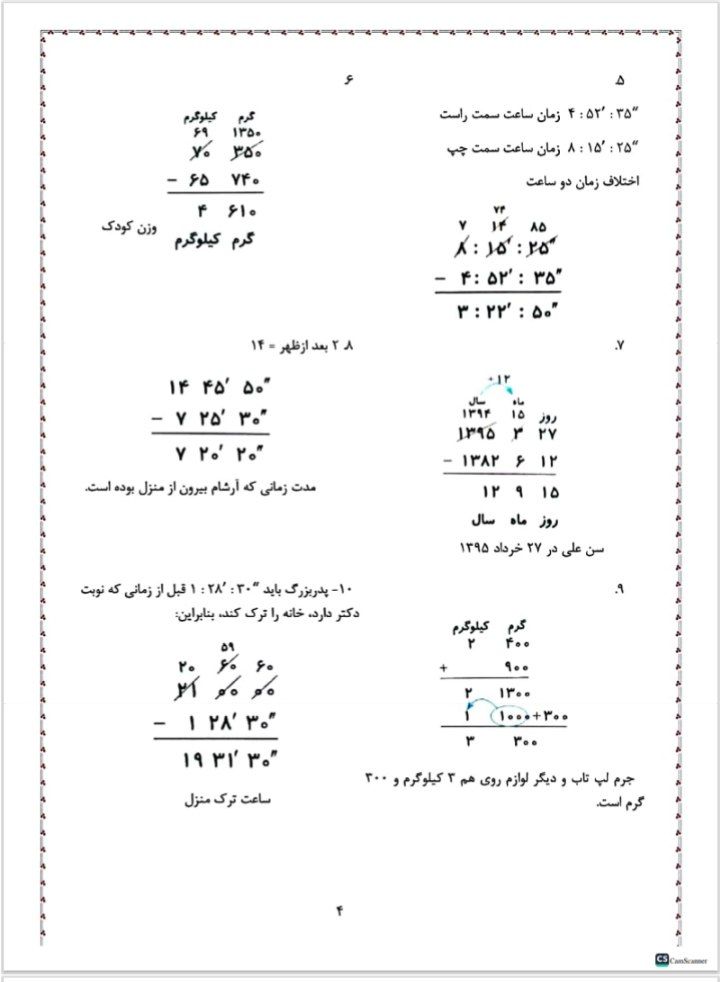 ۵.
۴ : ۵۲′ : ۳۵″ زمان ساعت سمت راست
۸ : ۱۵′ : ۲۵″ زمان ساعت سمت چپ
اختلاف زمان دو ساعت
۷۴
۷ ۱۴ ۸۵
۸ : ۱۵′ : ۲۵″
− ۴ : ۵۲′ : ۳۵″
۳ : ۲۲′ : ۵۰″
۶
کیلوگرم گرم
۶۹ ۱۳۵۰
۷۰ ۳۵۰
− ۶۵ ۷۴۰
۴ ۶۱۰
وزن کودک
گرم کیلوگرم
۷.
+۱۲
سال ماه
۱۳۹۴ ۱۵ روز
۱۳۹۵ ۳ ۲۷
− ۱۳۸۲ ۶ ۱۲
۱۲ ۹ ۱۵
روز ماه سال
سن علی در ۲۷ خرداد ۱۳۹۵
۸. ۲ بعد ازظهر = ۱۴
۱۴ ۴۵′ ۵۰″
− ۷ ۲۵′ ۳۰″
۷ ۲۰′ ۲۰″
مدت زمانی که آرشام بیرون از منزل بوده است.
۹.
کیلوگرم گرم
۲ ۴۰۰
+ ۹۰۰
۲ ۱۳۰۰
۱ ۱۰۰۰+۳۰۰
۳ ۳۰۰
جرم لپ تاب و دیگر لوازم روی هم ۳ کیلوگرم و ۳۰۰
گرم است.
۱۰- پدربزرگ باید ۱ : ۲۸′ : ۳۰″ قبل از زمانی که نوبت
دکتر دارد، خانه را ترک کند، بنابراین:
۵۹
۲۰ ۶۰ ۶۰
۲۱ ۰۰ ۰۰
− ۱ ۲۸′ ۳۰″
۱۹ ۳۱′ ۳۰″
ساعت ترک منزل
۴
CS CamScanner